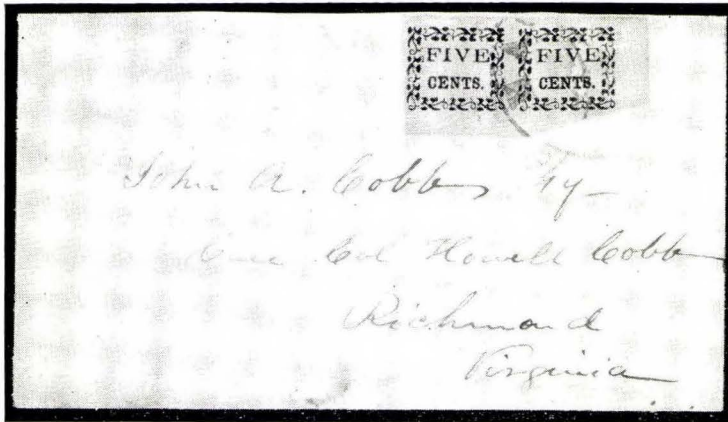 FIVE FIVE
CENTS. CENTS.
John A. Cobb
Care Col Howell Cobb
Richmond
Virginia